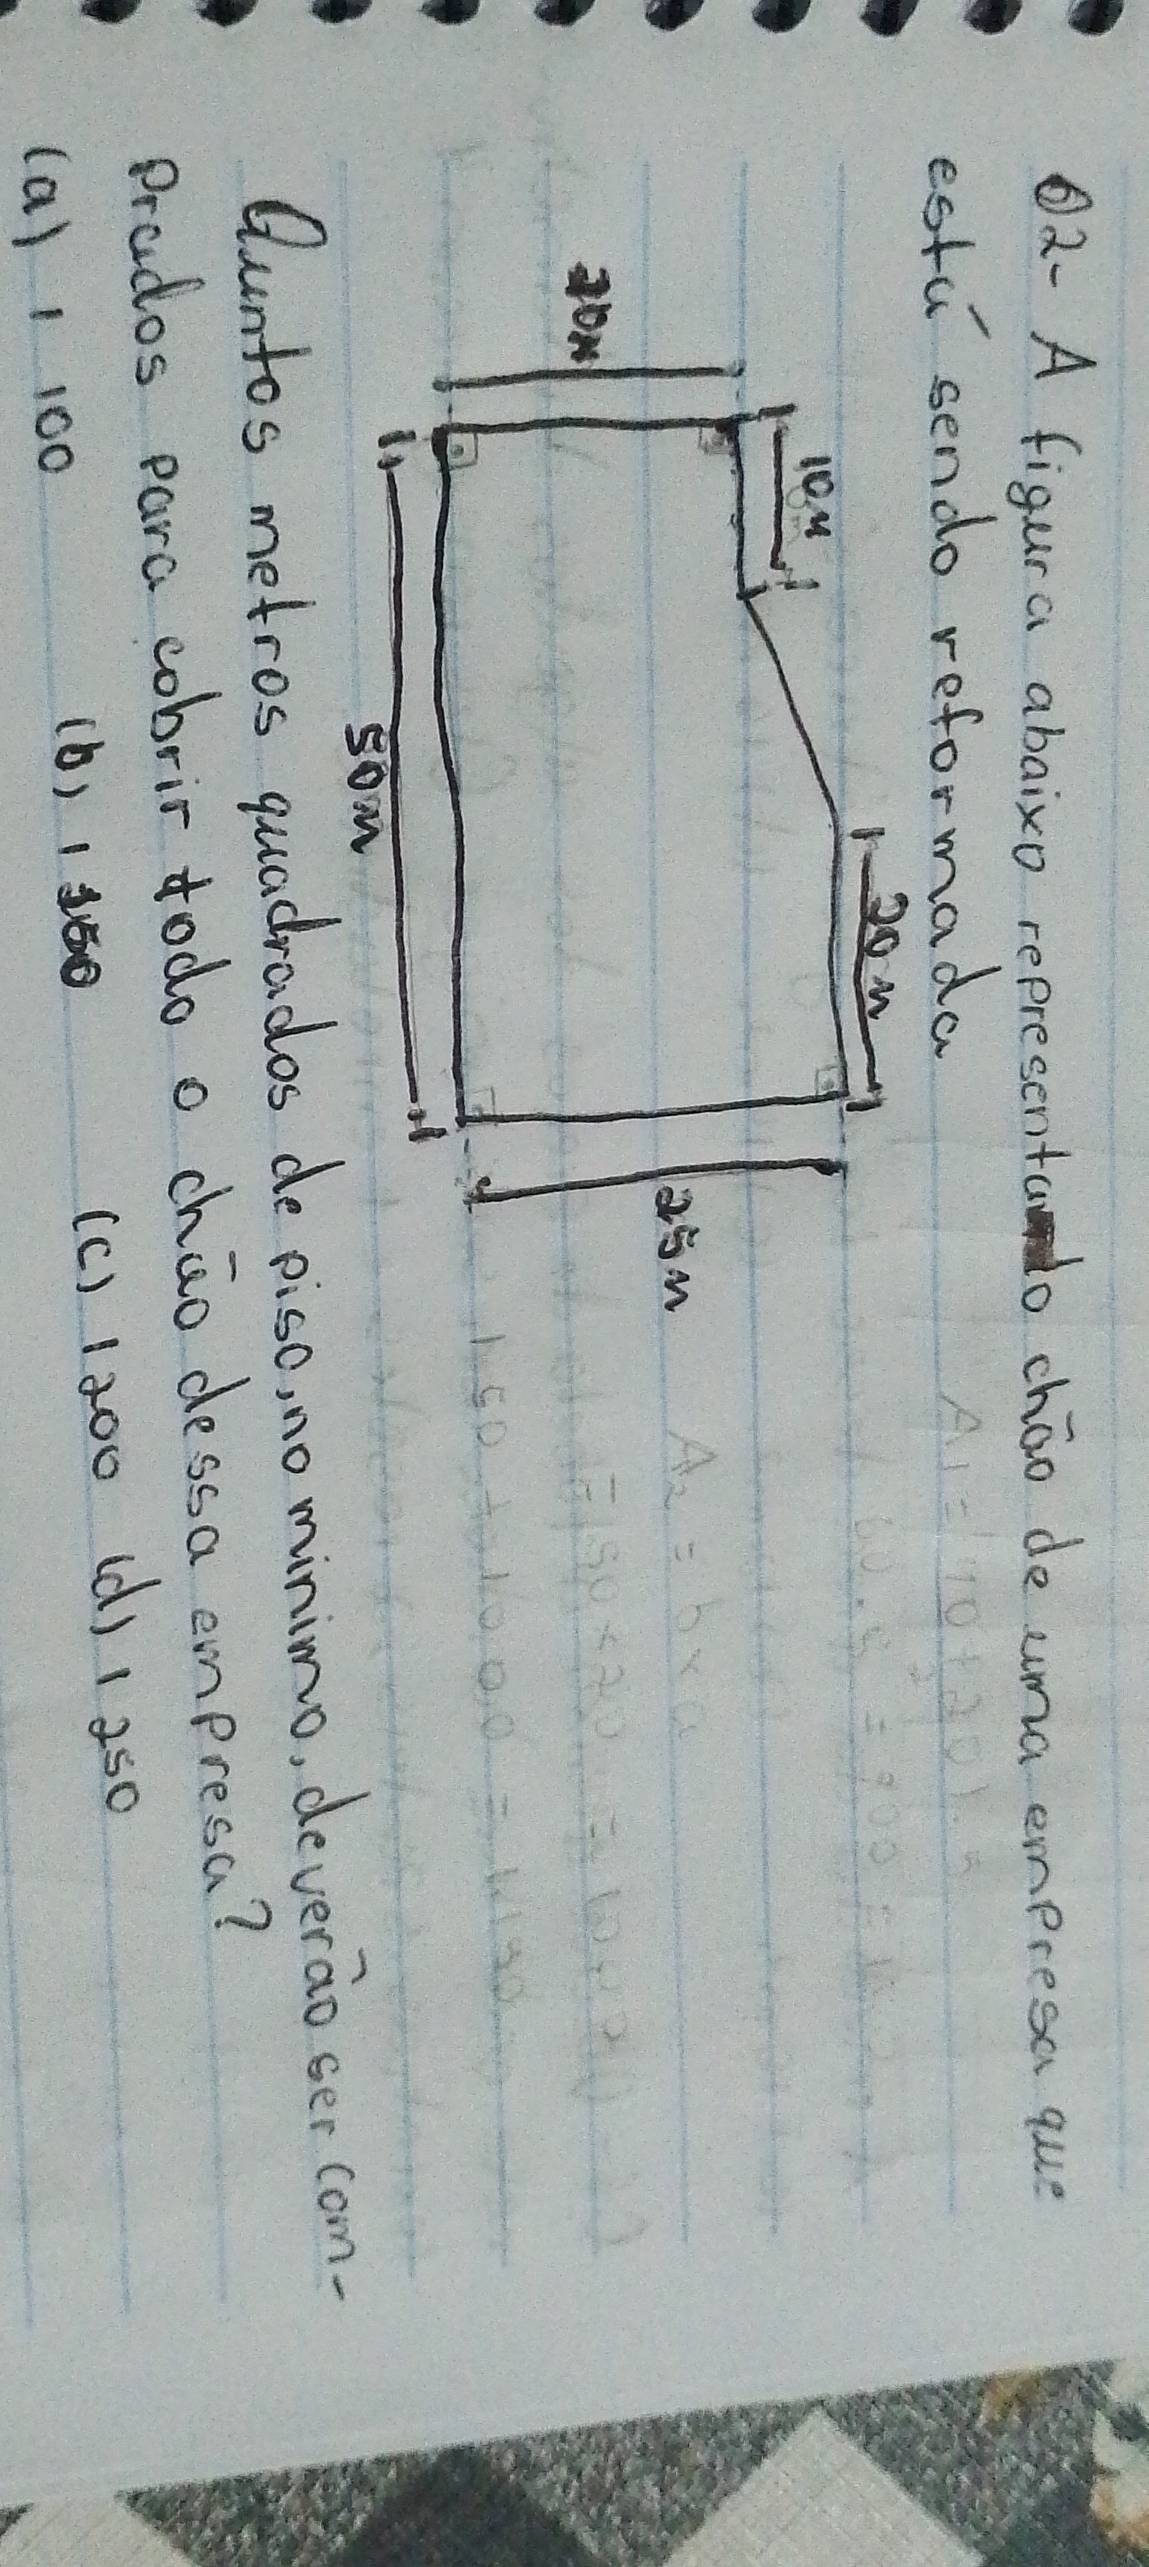 02- A figura abaixo representando chão de uma empresa que
está sendo reformada
10m
20m
20m
25m
50m
Quantos metros quadrados de piso, no minimo, deverão ser com-
prados para cobrir todo o chão dessa empresa?
(a) 1 100 (b) 1 150 (c) 1 200 (d) 1 250